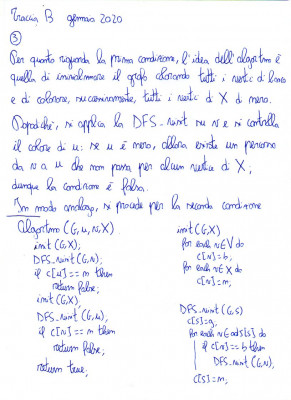 Traccia B gennaio 2020
③
Per quanto riguarda la prima condizione, l'idea dell'algoritmo è
quella di inizializzare il grafo colorando tutti i vertici di bianco
e di colorare, successivamente, tutti i vertici di X di nero.
Dopodiché, si applica la DFS_visit su v e si controlla
il colore di u: se u è nero, allora esiste un percorso
da v a u che non passa per alcun vertice di X,
dunque la condizione è falsa.
In modo analogo, si procede per la seconda condizione
Algoritmo (G,u,v,X)
init (G,X);
DFS_visit (G,v);
if c[u] == n then
return false;
init (G,X);
DFS_visit (G,u);
if c[v] == n then
return false;
return true;
init (G,X)
for each v∈V do
c[v] = b;
for each v∈X do
c[v] = n;
DFS_visit (G,s)
c[s]=g;
for each v∈adj[s] do
if c[v] == b then
DFS_visit (G,v);
c[s]=n;